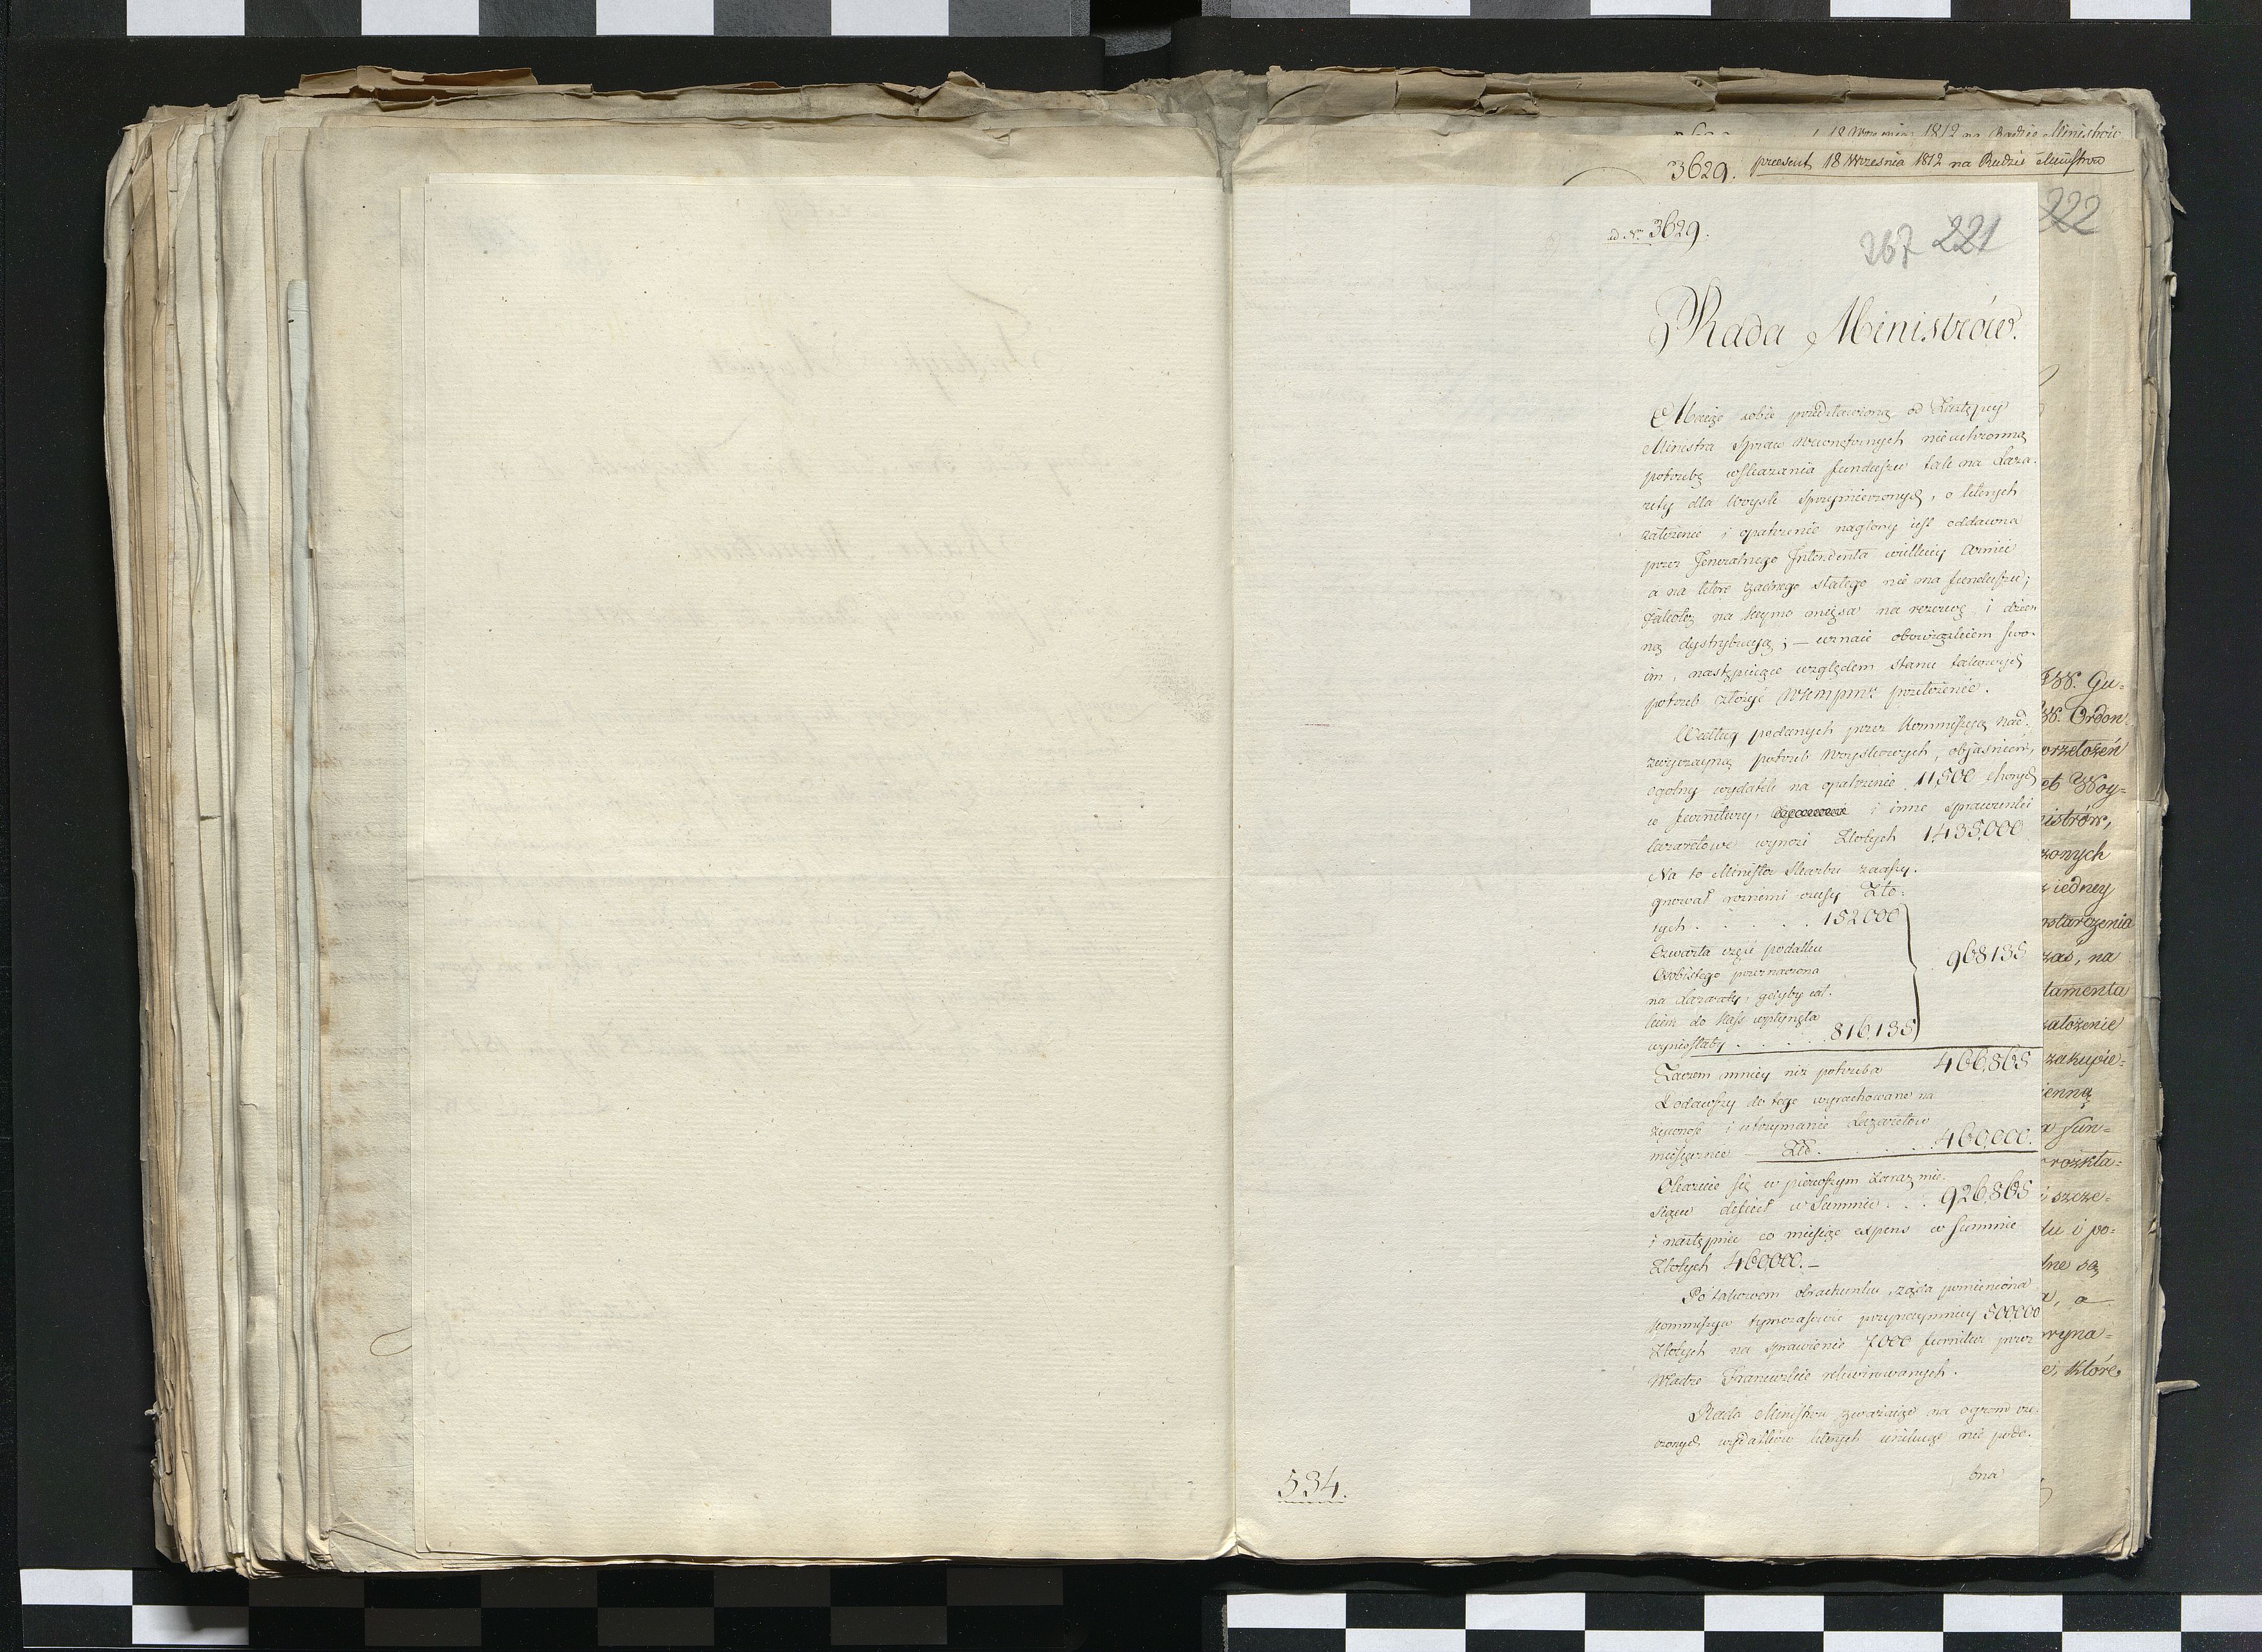 3629. praesent 18 Września 1812 na Radzie Ministrów
222
ad Nr 3629.
267 221
Rada Ministrów.
Maiąc sobie przedstawioną od Zastępcy
Ministra Spraw Wewnętrznych nieuchronną
potrzebę wskazania funduszu tak na Laza-
rety dla Woysk sprzymierzonych, o których
założenie i opatrzenie naglony iest oddawna
przez Jeneralnego Intendenta wielkiey Armii
a na które żadnego stałego nie ma funduszu;
iakoteż na kupno mięsa na rezerwę i dzien-
ną dystrybucyą; – uznaie obowiązkiem swo-
im, następuiące względem stanu takowych
potrzeb złożyć przełożenie.
Według podanych przez Kommissyą nad-
zwyczayną potrzeb Woyskowych, obiasnień,
ogólny wydatek na opatrzenie 11,500 chorych
w furnitury, i inne sprawunki
lazaretowe wynosi Złotych 1,435,000
Na to Minister Skarbu zaassy-
gnował roznemi czasy Zło-
tych . . . . . 152000
Czwarta część podatku
Osobistego przeznaczona
na Lazarety, gdyby cał-
kiem do Kass wpłynęła
wyniosłaby . . . . . 816,135
968135
Zaczem mniey niż potrzeba 466,865
Dodawszy do tego wyrachowane na
żywność i utrzymanie Lazaretów
miesięcznie – Złł. . . . . 460,000.
Okazuie się w pierwszym zaraz mie-
siącu deficit w Summie . . . 926,865
i następnie co miesiąc expens w Summie
Złotych 460,000. –
Po takowem obrachunku, żąda pomieniona
Kommissya tymczasowie przynaymniey 500,000
Złotych na sprawienie 7000 furnitur przez
Władze Francuzkie rekwirowanych.
Rada Ministrów zważaiąc na ogrom rze-
czonych wydatków których usiłuiąc nie podo-
bna
534.
JW. Gu-
JW. Ordon-
przełożeń
Woy-
nistrów,
zonych
iedney
ostarczenia
zaś, na
tamenta
założenie
zakupie-
ienną
fun-
rozkła-
szcze-
du i po-
dne są
a
ryna-
e, które